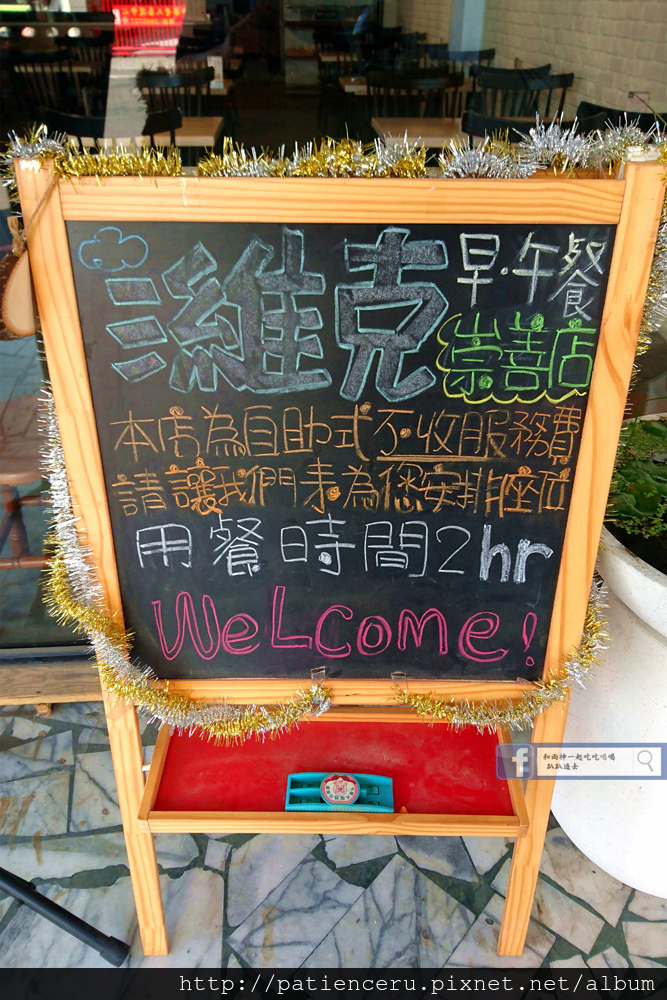 濰克
早·午餐
崇善店
本店為自助式不收服務費
請讓我們來為您安排座位
用餐時間2hr
WeLcome!
和雨神一起吃吃喝喝
趴趴造去
http://patienceru.pixnet.net/album